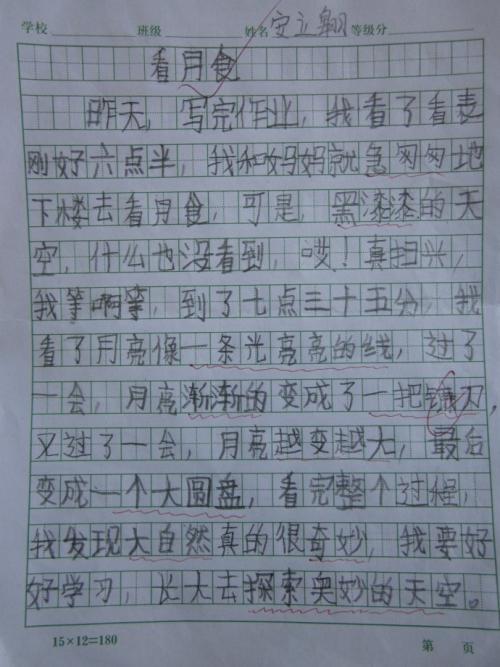 学校 班级 姓名 安立翱 等级分
看月食
昨天，写完作业，我看了看表
刚好六点半，我和妈妈就急匆匆地
下楼去看月食，可是，黑漆漆的天
空，什么也没看到，哎！真扫兴，
我等啊等，到了七点三十五分，我
看了月亮像一条光亮亮的线，过了
一会，月亮渐渐的变成了一把镰刀，
又过了一会，月亮越变越大，最后
变成一个大圆盘，看完整个过程，
我发现大自然真的很奇妙，我要好
好学习，长大去探索奥妙的天空。
15×12=180 第 页